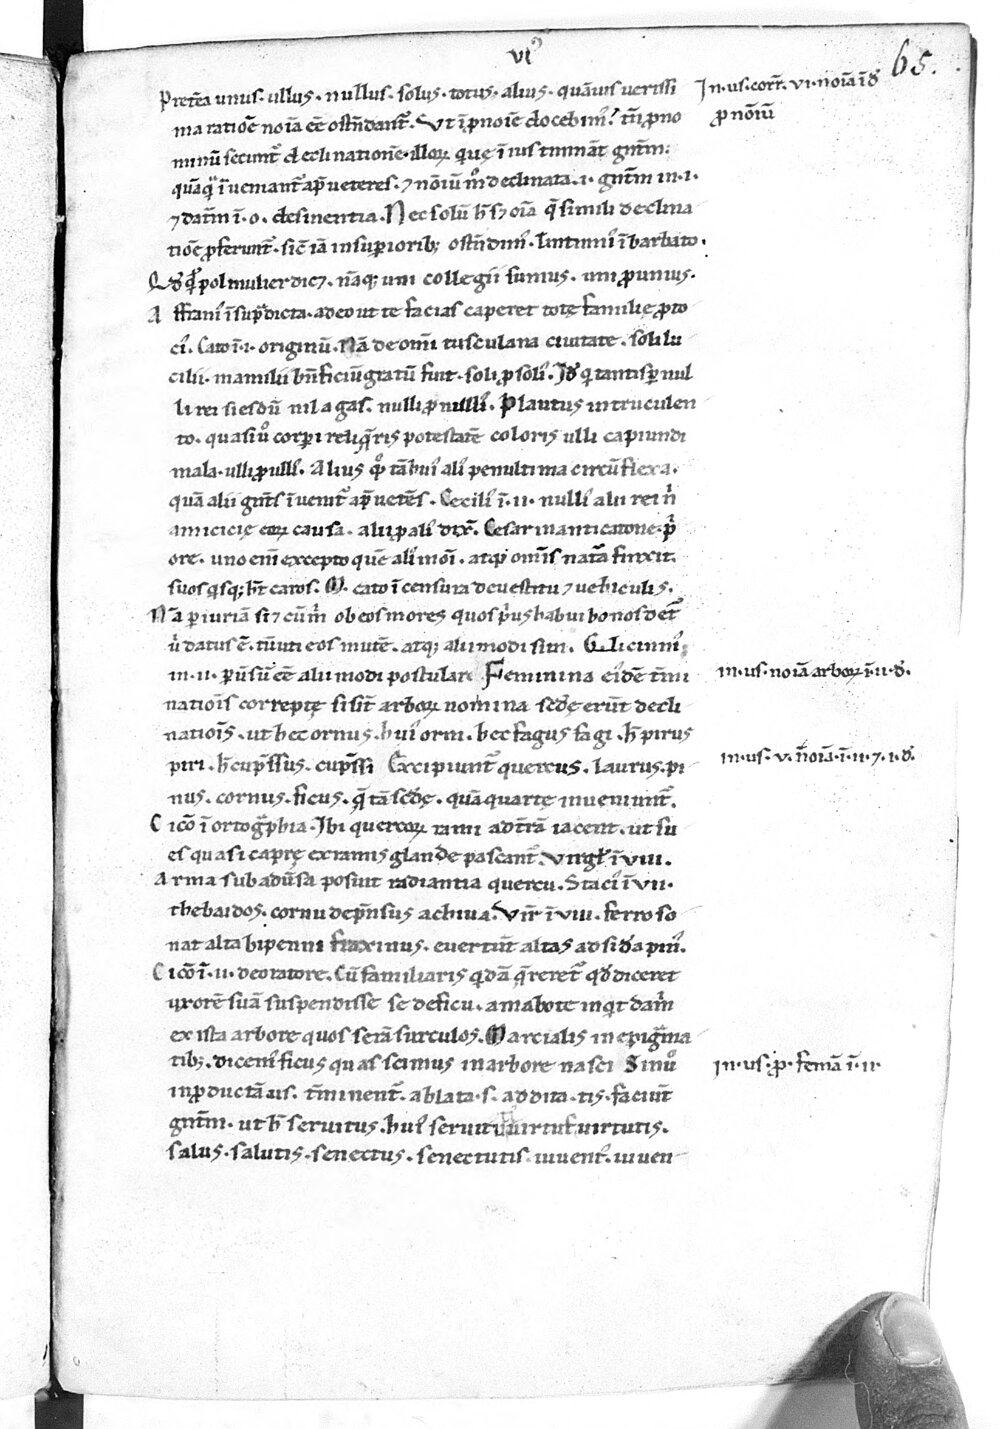 vi⁹
65.
Pret̃ea unus · ullus · nullus · solus · totus · alius · quãuis uerissi
In · us · corr̃ · vi · noĩa ĩ đ
ma ratioẽ noĩa eẽ ostñdant᷒. Ut ĩ p noĩe docebim᷒. tñ p no
p noĩũ
minũ secunt᷒ declinationẽ · illoꝝ quę ĩ ius t̃minãt gnt̃m:
quãq̃ ĩueniant᷒ ap̃ ueteres · ⁊ noĩũ m̊ declinata · i · gnt̃m in · i ·
⁊ dat̃m ĩ · o · desinentia. Nec solũ h̃ sꝫ oĩa q̃ simili declina
tioẽ p̱ferunt᷒ · sic̃ iã in superiorib; ostñdim᷒ · Tintinni᷒ ĩ barbato.
pol mulier dicꝫ · nãq; uni collegii sumus · uni p unius.
Affrani᷒ ĩ sup̃dicta · adeo ut te facias caperet totę familie p to
ci᷒. Cato ĩ · i · originũ. Nã de om̃i tusculana ciuitate · soli lu
cilii · mamilii bñficiũ gratũ fuit · soli p soli᷒. Id̃ q tantisp nul
li rei sies dũ nil agas · nulli p nulli᷒. Plautus in truculen
to · quasi ů corpi reliq̃ris potestatẽ coloris ulli capiundi
mala · ulli p ulli᷒. Alius q̊ tã hui᷒ ali᷒ penultima circũflexa ·
quã alii gnt̃s ĩuenit᷒ ap̃ uetẽs. Cecili᷒ ĩ · ii · nulli᷒ alii rei ñ
amicicię eoꝝ causa · alii p ali᷒ dix̃. Cesar in anticatone p̃
ore · uno eñi excepto quẽ ali᷒ moĩ · atq; om̃is natã finxit.
suos q̃sq; h̃t caros. M. cato ĩ censura de uestitu ⁊ uehiculis.
Nã p iuriã si ⁊ cũm̃ ob eos mores quos p̃us habui bonos det᷒
ů datus ẽ · tũ uti eos mutẽ · atq; alii modi sim. G. licinni᷒
in · ii · pũ sũ eẽ alii modi postulare Feminina ei᷒dẽ t̃mi
in · us · noĩa arboꝝ ĩ · ii · đ.
natiõis correptę si sit̃ arboꝝ nomina sed̃ę erũt decli
natiõis · ut hec ornus · hui᷒ orni · hec fagus fagi · h̃ pirus
piri · h̃ cup̃ssus · cup̃ssi Excipiunt᷒ quercus · laurus · pi
in · us · v · ñoĩa · ĩ · ii · ⁊ · i · đ.
nus · cornus · ficus · q̃ tã sed̃ę · quã quartę inueniunt᷒.
Cicõ ĩ ortog̃phia · Ibi quercoꝝ rami ad t̃rã iacent · ut su
es quasi caprę ex ramis glande pascant᷒. Uirgł ĩ viii.
Arma sub adũsa posuit radiantia quercu. Staci᷒ ĩ vii ·
thebaidos · cornu dep̃nsus achiua. Uir̃ ĩ viii. ferro so
nat alta bipenni fraxinus · euertũt altas ad sid̃a pin᷒.
Cicõ ĩ · ii · de oratore. Cũ familiaris q̃dã q̃reret᷒ qđ diceret
uxorẽ suã suspendisse se de ficu · amabo te inqt da m̃
ex ista arbore quos serã surculos. Marcialis in epig̃ma
tib; · dicem᷒ ficus quas scimus in arbore nasci Sin ů
In · us · p̃ · femã ĩ · ii
in p̱ductã us · t̃minent᷒ · ablata · s · addita · tis · faciũt
gnt̃m · ut h̃ seruitus · hui᷒ seruitutis uirtus uirtutis.
salus · salutis · senectus · senectutis iuuent᷒ · iuuen